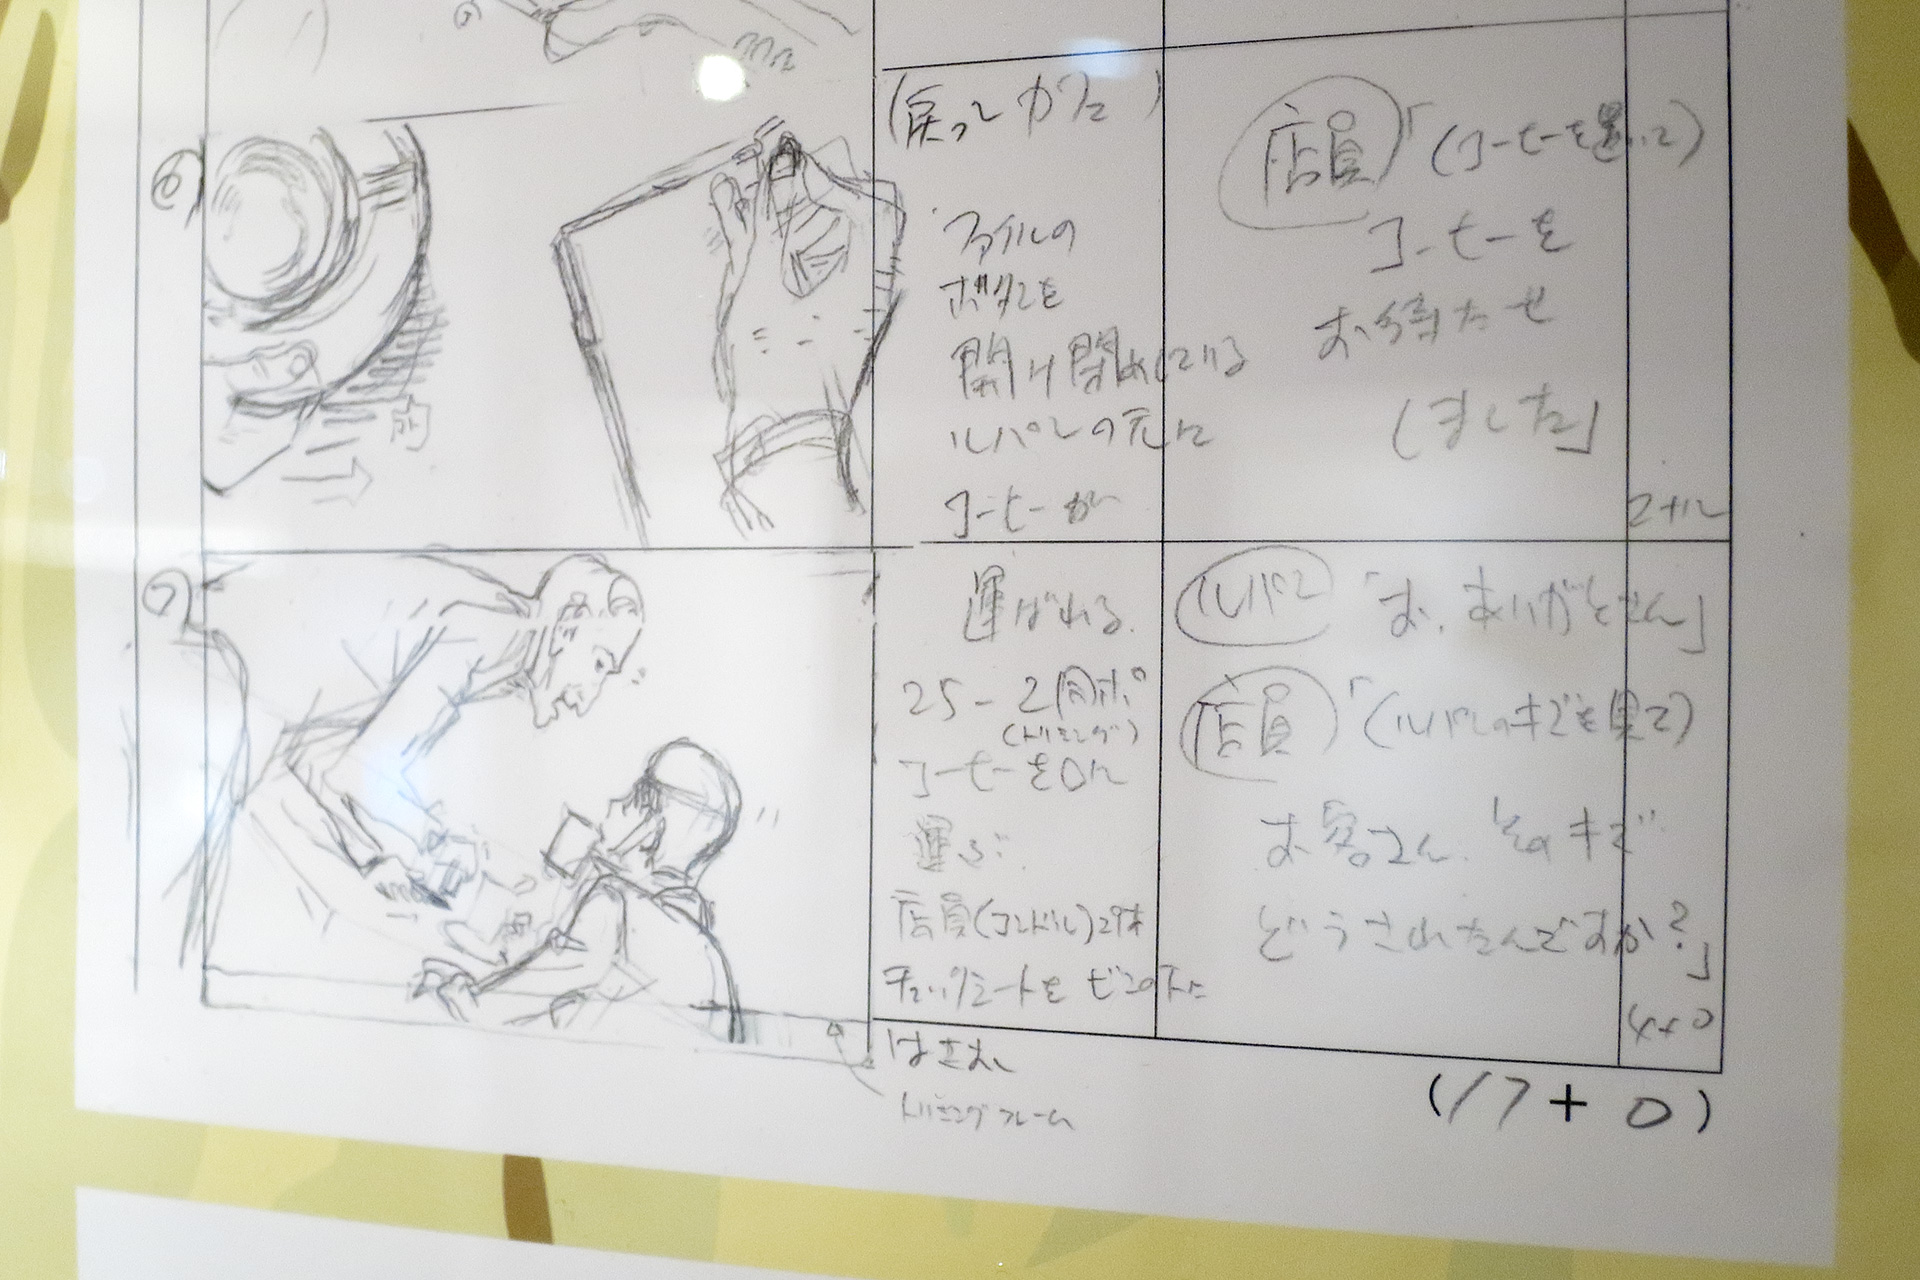 ⑥
(戻って カフェ)
ファイルの
ボタンを
開け閉めしている
ルパンの元に
コーヒーが
店員「(コーヒーを置いて)
コーヒーを
お待たせ
(ました)」
⑦
運ばれる.
25-2同ポ
(トリミング)
コーヒーを口に
運ぶ.
店員(コンドル)
チェックシートを ビンの下に
はさむ
トリミングフレーム
ルパン「お、ありがとさん」
店員「(ルパンのキズを見て)
お客さん、そのキズ
どうされたんですか?」
4+0
(17+0)